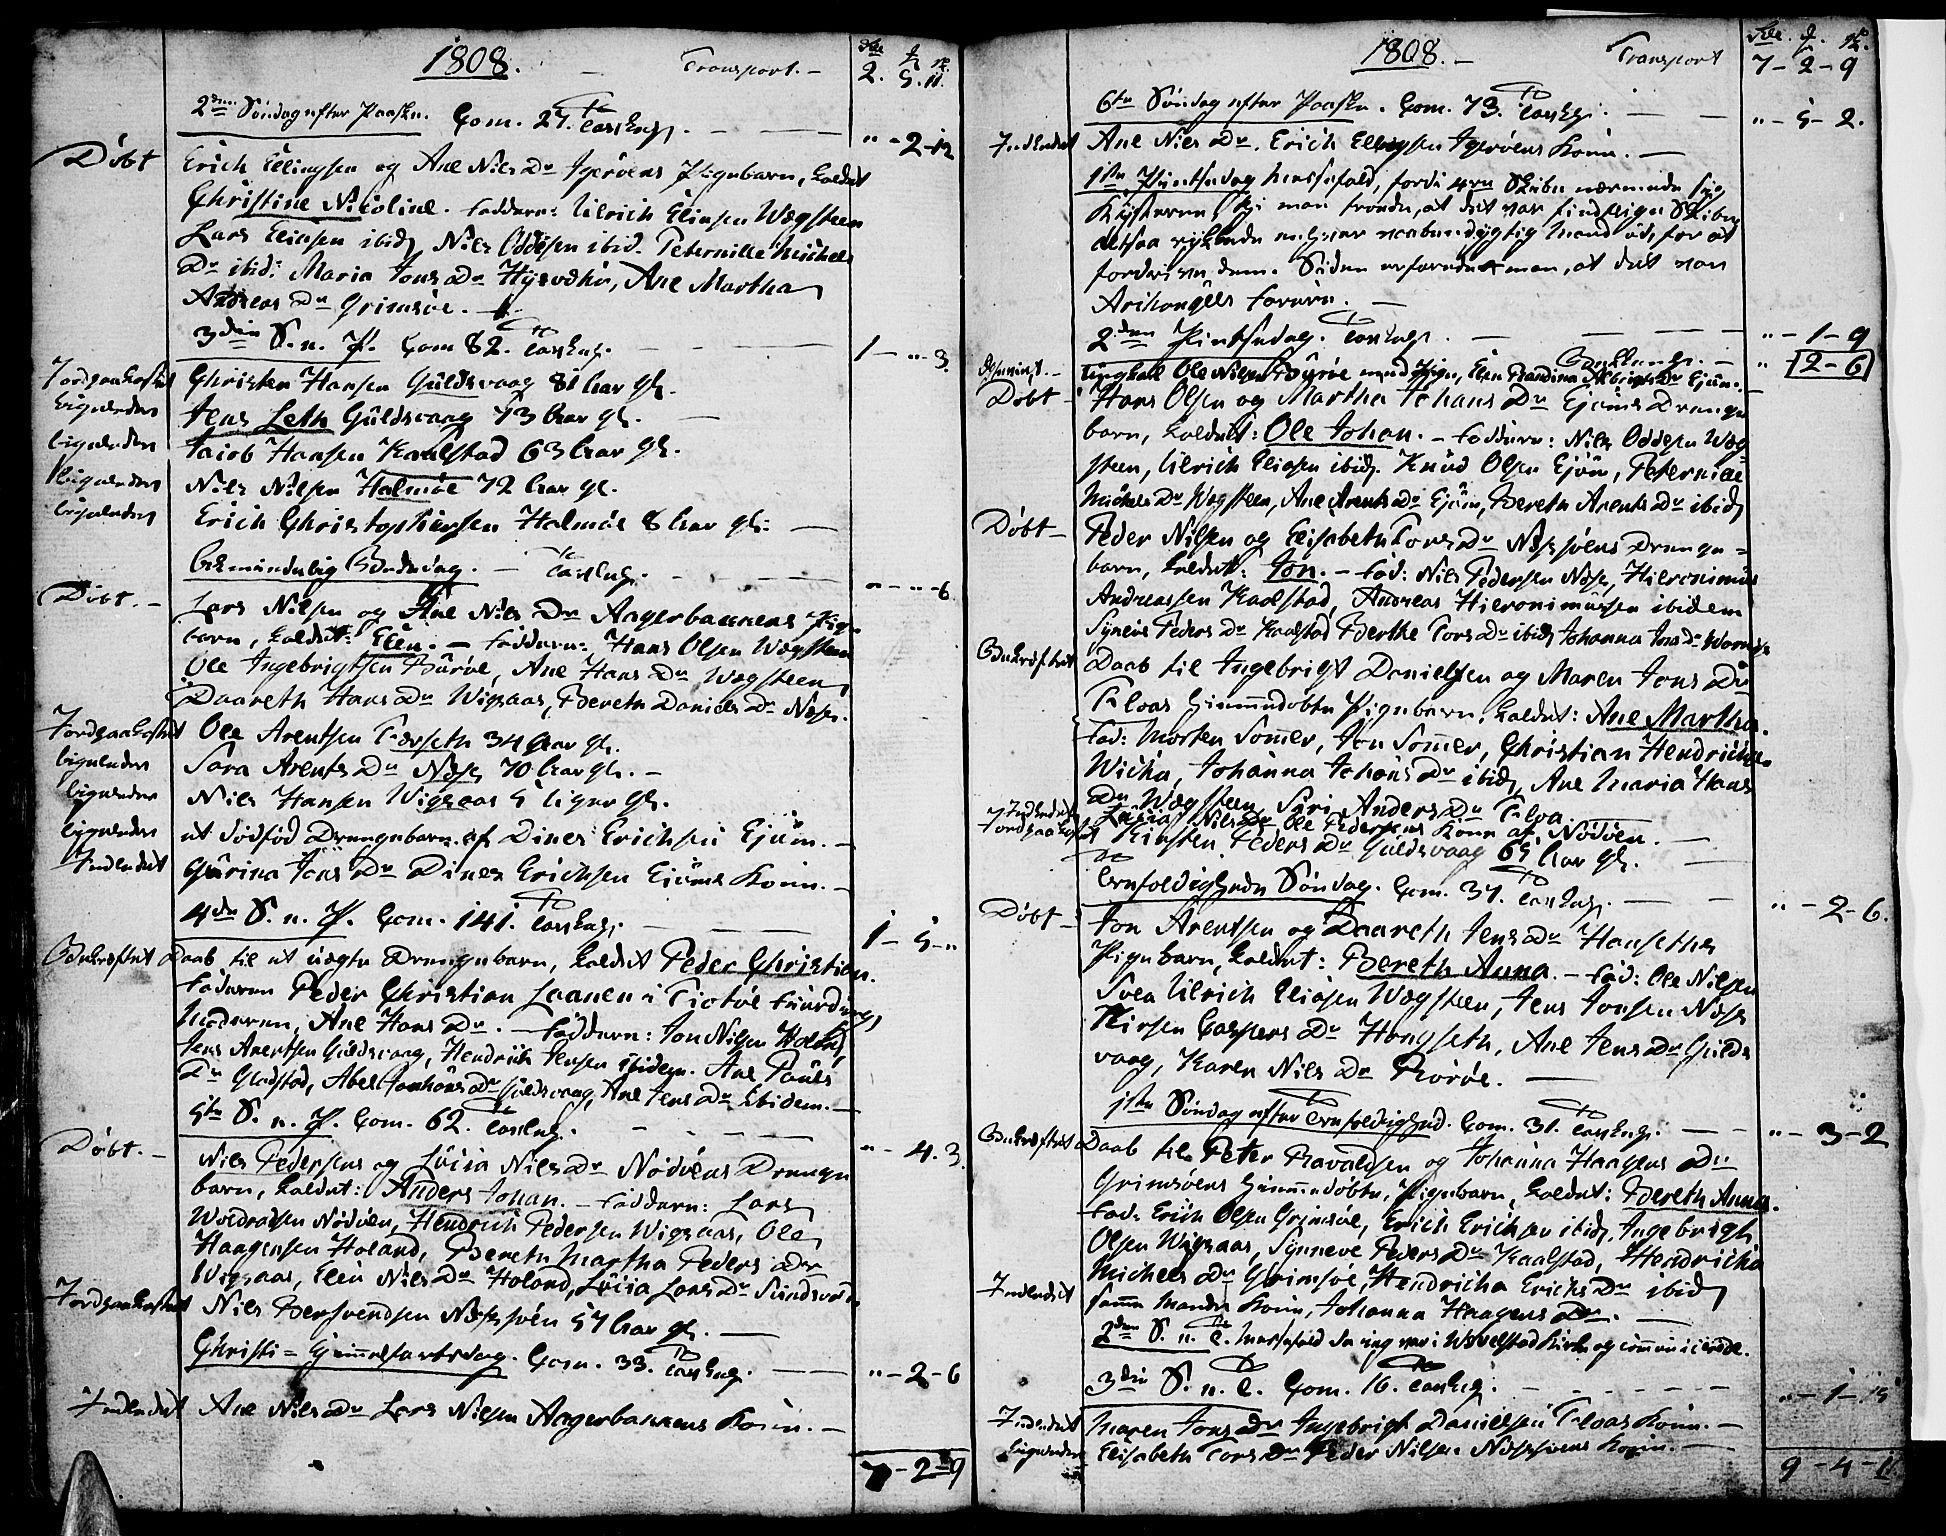 1808. Transport.
2. 5. 11.
2den Søndag efter Paaske. Com. 27. Tavlens.
" - 2 - 12
Døbt Erich Ellingsen og Ane Nils Dr Igerøens Pigebarn, kaldet
Christine Nicoline. Faddere: Ulrich Eliasen Wægsteen
Lars Eliasen ibid, Nils Oddesen ibid. Peternille Michels
Dr ibid: Maria Jons Dr, Ane Martha
Andreas Dr Grimsøe.
3die S. e. P. Com 82. Tavlens.
1 - " - 3.
Jordpaakastet Christen Hansen Guldsvaag 81 Aar gl.
Ligeledes Jens Leth Guldsvaag 73 Aar gl.
ligeledes Jacob Hansen Kaalstad 63 Aar gl.
ligeledes Nils Nilsen Halmøe 72 Aar gl.
ligeledes Erich Christophersen Halmøe 8 Aar gl:
Almindelig Bededag. Tavlens.
" - " - 6
Døbt. Lars Nilsen og Ane Nils Dr Aagerbakkens Pige
barn, kaldet: Elen. Faddere: Hans Olsen Wægsteen
Ole Ingebrigtsen Burøe, Ane Hans Dr Wægsteen,
Daareth Hans Dr Wigsaas, Bereth Daniels Dr Næss.
Jordpaakastet Ole Arentsen 34 Aar gl.
ligeledes Sara Arents Dr Næss 70 Aar gl.
ligeledes Nils Hansen Wigsaas 5 Uger gl.
ligeledes et dødfød Drengebarn af Dines Erichsen Ejum.
Indledet Gurina Jens Dr Dines Erichsen Ejums Kone.
4de S. e. P. Com. 141. Tavlens.
1 - 5 - "
Bekræftet Daab til et uægte Drengebarn, kaldet Peder Christian.
Faderen Peder Christian Laanen i Tiotøe
Moderen, Ane Hans Dr. Faddere: Jon Nilsen Holand,
Jens Arentsen Guldsvaag, Hendrich Jensen ibidem. Ane Pauls
Dr Gladstad, Abel Johans Dr Guldsvaag, Ane Jens Dr ibidem.
5te S. e. P. Com. 62. Tavlens.
" - 4. 3.
Døbt. Nils Pedersens og Lucia Nils Dr Nødøens Drenge
barn, kaldet: Anders Johan. Faddere: Lars
Nødøen, Hendrich Pedersen Wigsaas, Ole
Haagensen Holand, Bereth Martha Peders Dr
Wigsaas, Elen Nils Dr Holand, Lucia Lars Dr
Jordpaakastet Nils Bersvendsen 57 Aar gl.
Christi Himmelfartsdag. Com. 33. Tavlens.
" - 2 - 6
Indledet Ane Nils Dr Lars Nilsen Aagerbakkens Kone.
7 - 2 - 9
1808. Transport
7 - 2 - 9
6te Søndag efter Paaske. Com. 73. Tavlens.
" - 5 - 2.
Indledet Ane Nils Dr. Erich Ellingsen Igerøens Kone.
1ste Pintsedag Messefald, fordi 4re Skibe nærmede sig
Kysterne, thi man troede, at det var fiendtlige Skibe
altsaa rykkede enhver vaabendygtig Mand ud, for at
fordrive dem. Siden erfarede man, at det var
Archangels Farere.
2den Pintsedag. Tavlens.
" - 1 - 9
Brudens.
" 2 - 6
Ungkarl Ole Nilsen Burøe med Pige, Elen Ejum.
Døbt Hans Olsen og Martha Johans Dr Ejums Drenge
barn, kaldet: Ole Johan. Faddere: Nils Oddesen Wæg
steen, Ulrich Eliasen ibid. Knud Olsen Ejum, Peternille
Michels Dr Wægsteen, Ane Arents Dr Ejum, Bereth Arents Dr ibid
Døbt Peder Nilsen og Elisabeth Tors Dr Drenge
barn, kaldet: Jon. Fad: Nils Pedersen Næss, Hieronimus
Andreassen Kaalstad, Andreas Hieronimusen ibidem
Synneve Peders Dr Kaalstad Berthe Tors Dr ibid Johanna Jons Dr
Bekræftet Daab til Ingebrigt Danielsen og Maren Jons Dr
Floas hjemmedøbte Pigebarn, kaldet: Ane Martha.
Fad: Morten Sommer, Jon Sommer, Christian Hendrichsen
Wicha, Johanna Johans Dr ibid, Ane Maria Hans
Dr Wægsteen, Siri Anders Dr Floa.
Indledet Lucia Nils Dr Ole Pedersens Kone af Nødøen.
Jordpaakastet Kirsten Peders Dr Guldsvaag 65 Aar gl.
Trefoldigheds Søndag. Com. 37. Tavlens.
" - 2 - 6.
Døbt Jon Arentsen og Daareth Jens Dr Haugseths
Pigebarn, kaldet: Bereth Anna. Fad: Ole Nilsen
Svea Ulrich Eliasen Wægsteen, Jens Jonsen Næss
Kirsten Caspers Dr Hougseth, Ane Jens Dr Gulds
vaag, Karen Nils Dr Rorøe.
1ste Søndag efter Trefoldighed. Com. 31. Tavlens.
" - 3 - 2
Bekræftet Daab til Peter Ravaldsen og Johanna Haagens Dr
Grimsøens hjemmedøbte Pigebarn, kaldet: Bereth Anna.
Fad: Erich Olsen Grimsøe, Erich Erichsen ibid, Ingebrigt
Olsen Wigsaas, Synneve Peders Dr Kaalstad, Hendricha
Michels Dr Grimsøe, Hendricha Erichs Dr ibid
Indledet samme Mands Kone, Johanna Haagens Dr.
2den S. e. T. Messefald da jeg var i Wevelstad Kirke og communicerede.
3die S. e. T. Com. 16. Tavlens.
" - 1 - 15
Indledet Maren Jons Dr Ingebrigt Danielsen Floas Kone.
ligeledes Elisabeth Tors Dr Peder Nilsen Kone.
9 - 4 - 11.